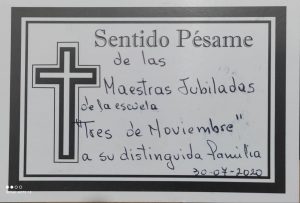 Sentido Pésame
de las
Maestras Jubiladas
de la escuela
"Tres de Noviembre"
a su distinguida familia
30-07-2020